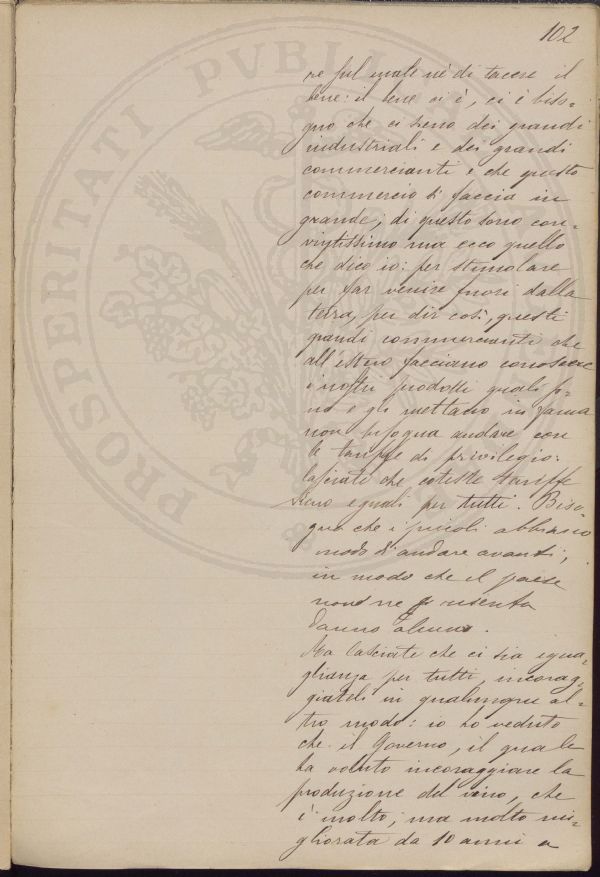 102
PROSPERITATI PVBLI
re sul male nè di tacere il
bene: il bene vi è, ci è biso-
gno che ci sieno dei grandi
industriali e dei grandi
commercianti e che questo
commercio si faccia in
grande; di questo sono con-
vintissimo ma ecco quello
che dico io: per stimolare
per far venire fuori dalla
terra, per dir così, questi
grandi commercianti che
all'estero facciano conoscere
i nostri prodotti quali so-
no e gli mettano in fama
non bisogna andare con
le tariffe di privilegio:
lasciate che coteste tariffe
sieno eguali per tutti. Biso-
gna che i piccoli abbiano
modo d'andare avanti,
in modo che il paese
non ne risenta
danno alcuno.
Ma lasciate che ci sia egua-
glianza per tutti, incorag-
giateli in qualunque al-
tro modo: io ho veduto
che il Governo, il quale
ha voluto incoraggiare la
produzione del vino, che
è molto, ma molto mi-
gliorata da 10 anni a